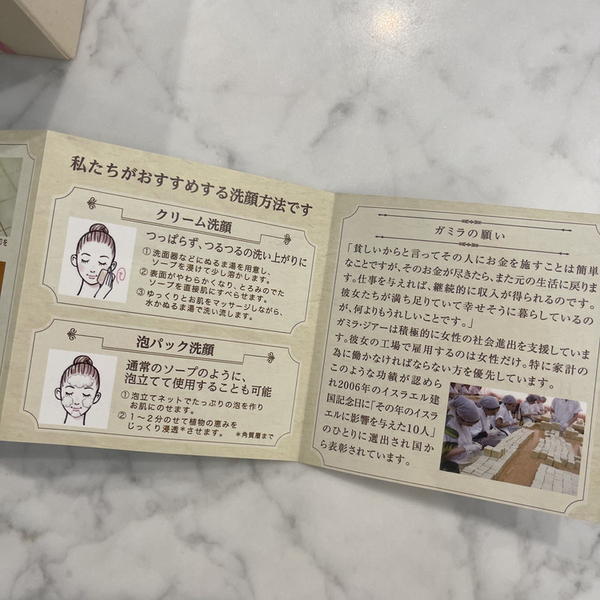 私たちがおすすめする洗顔方法です
クリーム洗顔
つっぱらず、つるつるの洗い上がりに
①洗面器などにぬるま湯を用意し、
ソープを浸けて少し溶かします。
②表面がやわらかくなり、とろみのでた
ソープを直接肌にすべらせます。
③ゆっくりとお肌をマッサージしながら、
水かぬるま湯で洗い流します。
泡パック洗顔
通常のソープのように、
泡立てて使用することも可能
①泡立てネットでたっぷりの泡を作り
お肌にのせます。
②1〜2分のせて植物の恵みを
じっくり浸透*させます。 *角質層まで
ガミラの願い
「貧しいからと言ってその人にお金を施すことは簡単
なことですが、そのお金が尽きたら、また元の生活に戻りま
す。仕事を与えれば、継続的に収入が得られるのです。
彼女たちが満ち足りていて幸せそうに暮らしているの
が、何よりもうれしいことです。」
ガミラ・ジアーは積極的に女性の社会進出を支援していま
す。彼女の工場で雇用するのは女性だけ。特に家計の
為に働かなければならない方を優先しています。
このような功績が認めら
れ2006年のイスラエル建
国記念日に「その年のイスラ
エルに影響を与えた10人」
のひとりに選出され国か
ら表彰されています。